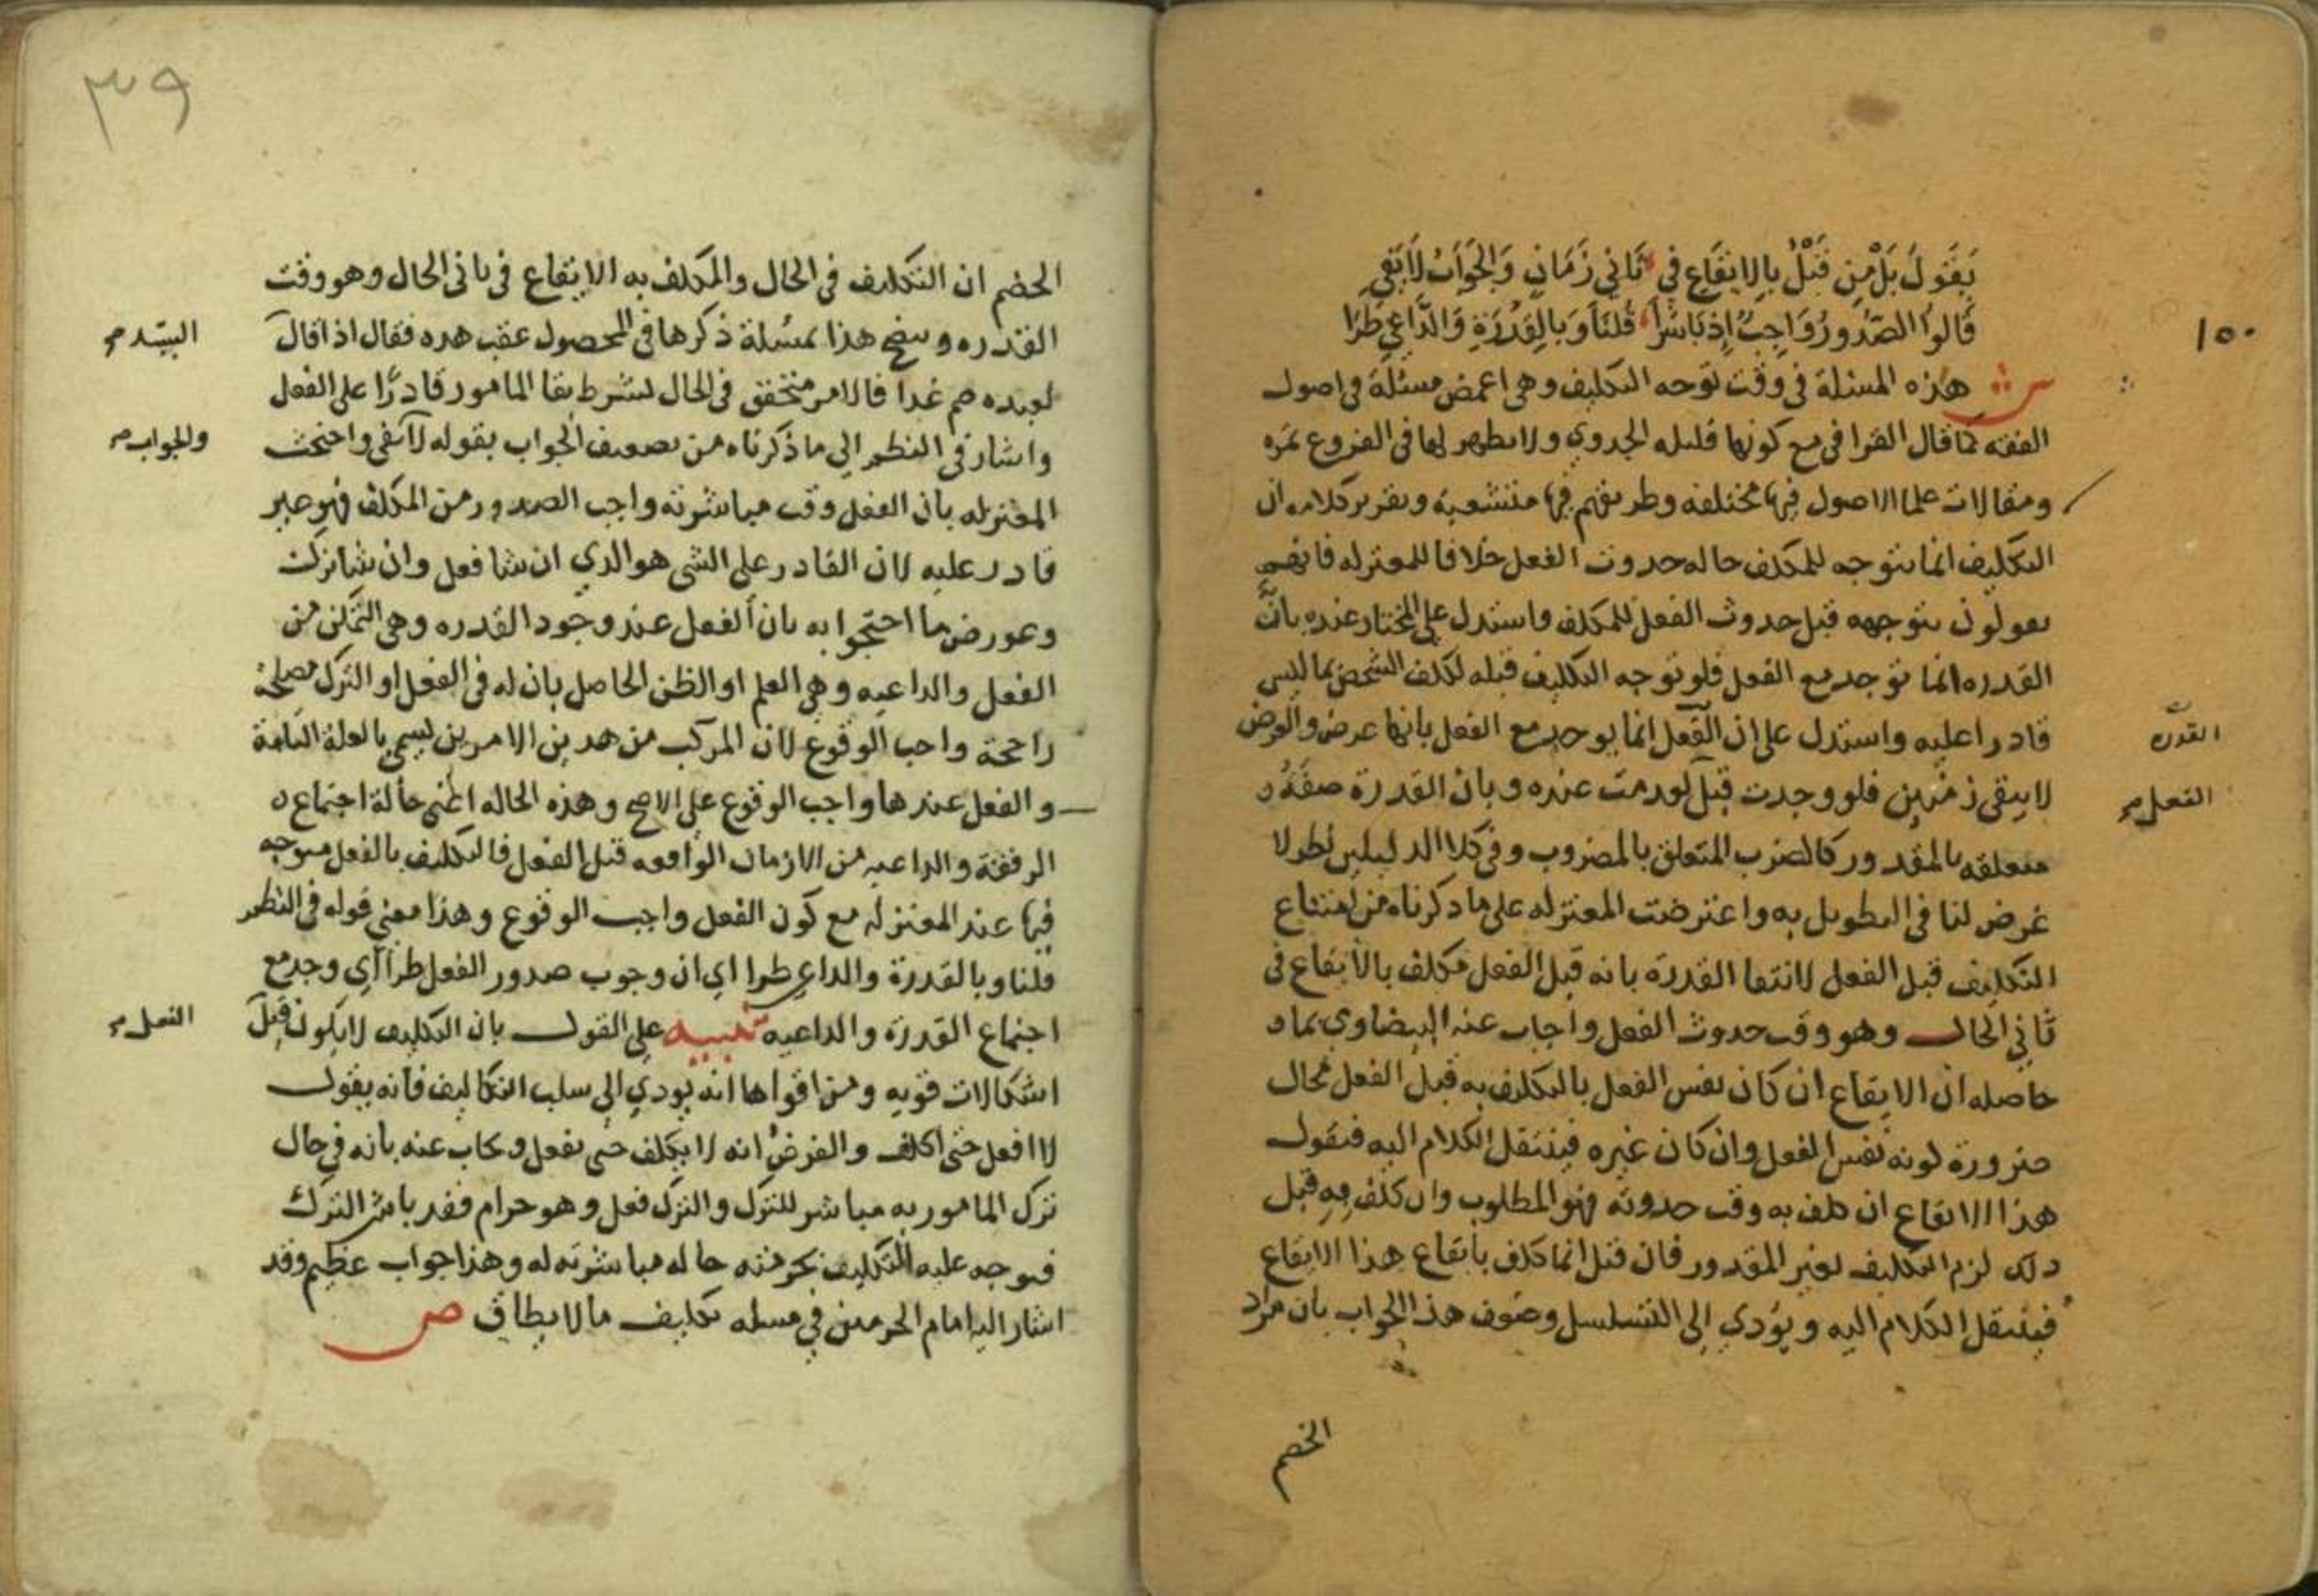 يَقُولُ بَلْ مِن قَبْلُ بِالإيقَاعِ في ثَاني زَمَانٍ وَالجَوَابُ لاَ يَفي
قَالُوا الصّدُورُ وَاجِبٌ إِذ بَاشَرَا قُلنَا وَبِالقُدرَةِ وَالدَّاعِي طَرَا
١٥٠
ش هذه المسئلة في وقت توجه التكليف وهي اغمض مسئلة في اصول
الفقه كما قال القرافي مع كونها قليله الجدوي ولا يظهر لها في الفروع ثمره
ومقالات علما الاصول فيها مختلفه وطريقهم فيها متشعبة وتقرير كلامه ان
التكليف انما يتوجه للمكلف حاله حدوث الفعل خلافا للمعتزله فانهم
يقولون بتوجهه قبل حدوث الفعل للمكلف واستدل علي المختار عنده بانّ
القدره انما توجد مع الفعل فلو توجه التكليف قبله لكلف الشخص بما ليس
قادرا عليه واستدل علي ان الفعل انما يوجد مع الفعل بانها عرض والعرض
القدرة
لا يبقي زمنين فلو وجدت قبل لعدمت عنده وبان القدرة صفة
الفعل
متعلقه بالمقدور كالضرب المتعلق بالمضروب وفي كلا الدليلين نظر لا
غرض لنا في التطويل به واعترضت المعتزله علي ما ذكرناه من امتناع
التكليف قبل الفعل لانتفا القدرة بانه قبل الفعل مكلف بالايقاع في
ثاني الحال وهو وقت حدوث الفعل واجاب عنه البيضاوي بما
حاصله ان الايقاع ان كان نفس الفعل بالتكليف به قبل الفعل محال
ضرورة كونه نفس الفعل وان كان غيره فينتقل الكلام اليه فنقول
هذا الايقاع ان كلف به وقت حدوثه فهو المطلوب وان كلف به قبل
ذلك لزم التكليف بغير المقدور فان قيل انما كلف بايقاع هذا الايقاع
فينتقل الكلام اليه ويؤدي الي التسلسل وضعف هذا الجواب بان مراد
الخصم
٣٩
الخصم ان التكليف في الحال والمكلف به الايقاع في ثاني الحال وهو وقت
القدره ويتضح هذا بمسئلة ذكرها في المحصول عقب هذه فقال اذا قال
السيد
لعبده صم غدا فالامر متحقق في الحال بشرط بقا المامور قادرًا علي الفعل
واشار في النظم الي ما ذكرناه من تضعيف الجواب بقوله لا يفي واحتجت
والجواب
المعتزله بان الفعل وقت مباشرته واجب الصدور من المكلف فهو غير
قادر عليه لان القادر علي الشي هو الذي ان شا فعل وان شا ترك
وعورض ما احتجوا به بان الفعل عند وجود القدره وهي التمكن من
الفعل والداعيه وهي العلم او الظن الحاصل بان له في الفعل او الترك مصلحة
راجحة واجب الوقوع لان المركب من هذين الامرين يسمي بالعلة التامة
والفعل عندها واجب الوقوع علي الاصح وهذه الحاله اعني حالة اجتماع
القدرة والداعيه من الازمان الواقعه قبل الفعل فالتكليف بالفعل متوجه
فيها عند المعتزله مع كون الفعل واجب الوقوع وهذا معني قوله في النظم
قلنا وبالقدرة والداعي طرا اي ان وجوب صدور الفعل طرا اي وجد مع
اجتماع القدرة والداعيه تنبيه علي القول بان التكليف لا يكون قبل
الفعل
اشكالات قويه ومن اقواها انه يودي الي سلب التكاليف فانه يقول
لا افعل حتي اكلف والفرض انه لا يكلف حتي يفعل وجاب عنه بانه في حال
ترك المامور به مباشر للترك والترك فعل وهو حرام فقد باشر الترك
فتوجه عليه التكليف بحرمته حاله مباشرته له وهذا جواب عظيم وقد
اشار اليه امام الحرمين في مسله تكليف ما لا يطاق ص